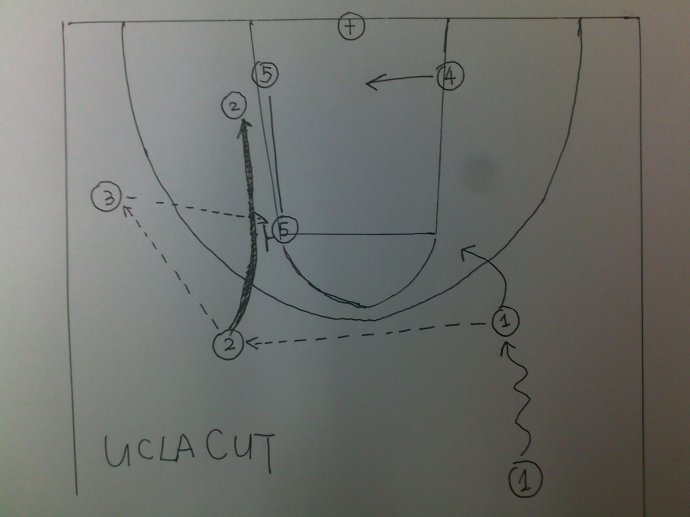 +
5
4
2
3
5
1
2
1
UCLA CUT